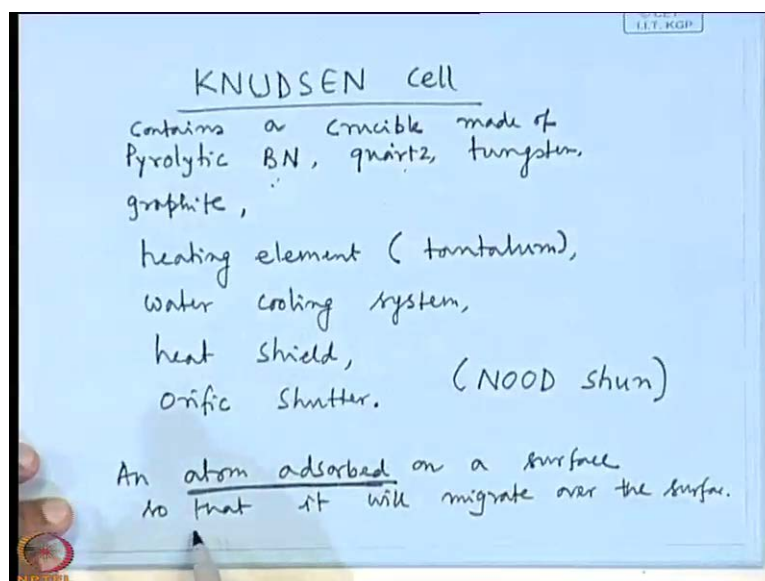 I.I.T. KGP
KNUDSEN Cell
Contains a crucible made of
Pyrolytic BN, quartz, tungsten,
graphite,
heating element (tantalum),
water cooling system,
heat shield,
Orific Shutter.
(NOOD shun)
An atom adsorbed on a surface
so that it will migrate over the surfac.
NPTEL